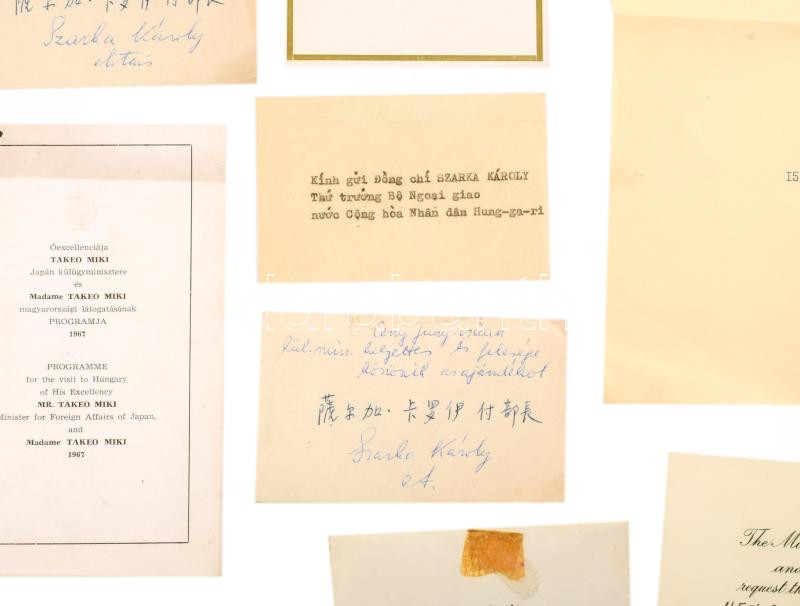 Szarka Károly
elvtárs
Őexcellenciája
TAKEO MIKI
Japán külügyminisztere
és
Madame TAKEO MIKI
magyarországi látogatásának
PROGRAMJA
1967
PROGRAMME
for the visit to Hungary
of His Excellency
MR. TAKEO MIKI
Minister for Foreign Affairs of Japan,
and
Madame TAKEO MIKI
1967
Kính gửi Đồng chí SZARKA KÁROLY
Thứ trưởng Bộ Ngoại giao
nước Cộng hòa Nhân dân Hung-ga-ri
kül.min. helyettes és felesége
köszönik az ajándékot
薩尔加·卡罗伊 付部長
Szarka Károly
eA.
15
The
and
request th